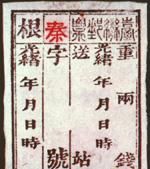 重兩錢
光緒年月日時
送站
秦字號
根
光緒年月日時